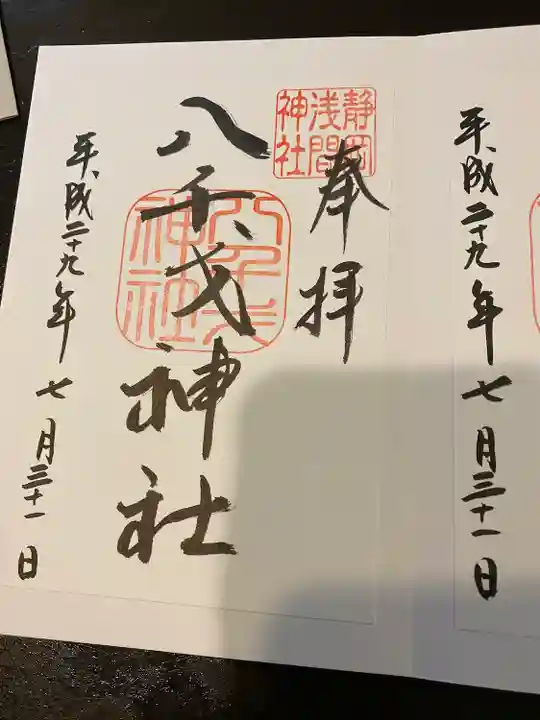 平成二十九年 七月三十一日
静岡
浅間
神社
奉拝
八千戈神社
八千戈
神社
平成二十九年 七月三十一日